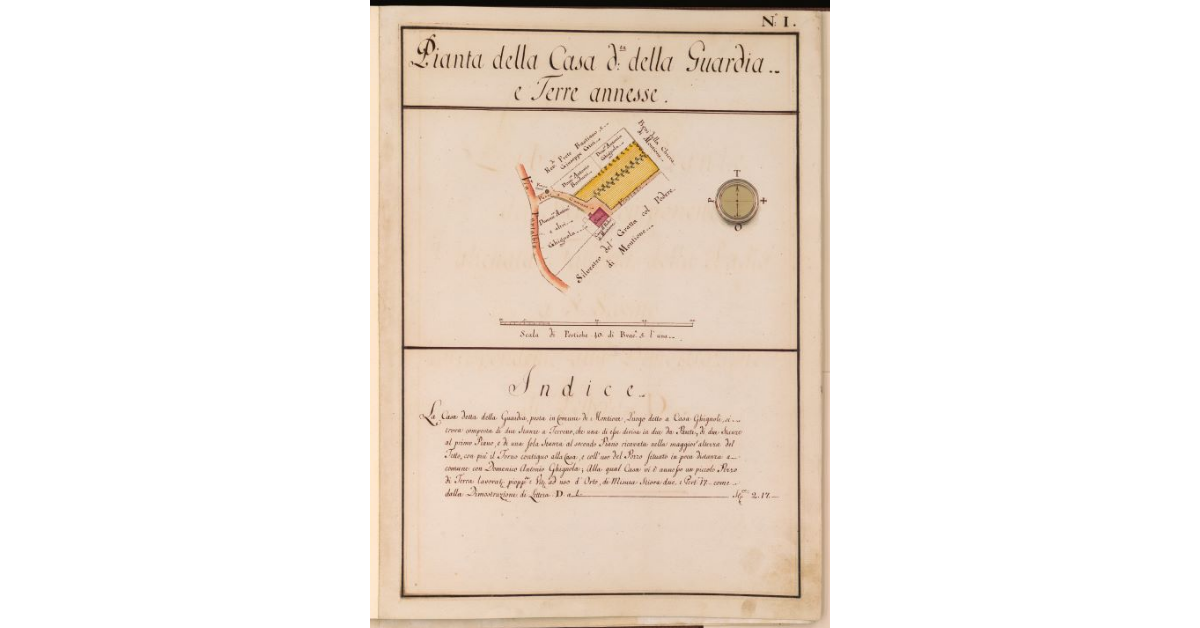 N.º I.
Pianta della Casa d.ta della Guardia
e Terre annesse.
Beni della Chiesa
di Montione
Giuseppe
Dom.co Antonio
Ghignola
Dom.co Antonio
Pozzo
Via
Domen.co Anton.o
e altri
Ghignola
Silvestro del Ceratta col Podere
di Montione
T
P
O
Scala di Pertiche 40 di Brac.a 5 l'una
Indice
La Casa detta della Guardia, posta in Comune di Montione, Luogo detto a Casa Ghignoli, si
trova composta di due Stanze a Terreno, che una di esse divisa in due da Parete, di due Stanze
al primo Piano, e di una sola Stanza al secondo Piano ricavata nella maggior' altezza del
Tetto, con più il Forno contiguo alla Casa, e coll' uso del Pozzo situato in poca distanza a
comune con Domenico Antonio Ghignola; Alla qual Casa vi è annesso un piccolo Pezzo
di Terra lavorat. piopp.e Vit. ad uso d' Orto, di Misura Stiora due, e Pert.e 17 come
dalla Dimostrazione di Lettera D a L Sti.a 2. 17